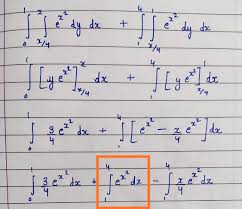 ∫₀¹ ∫_{x/4}^{x} e^{x²} dy dx + ∫₁⁴ ∫_{x/4}^{1} e^{x²} dy dx
∫₀¹ [y e^{x²}]_{x/4}^{x} dx + ∫₁⁴ [y e^{x²}]_{x/4}^{1} dx
∫₀¹ 3/4 e^{x²} dx + ∫₁⁴ [e^{x²} - x/4 e^{x²}] dx
∫₀¹ 3/4 e^{x²} dx + ∫₁⁴ e^{x²} dx - ∫₁⁴ x/4 e^{x²} dx